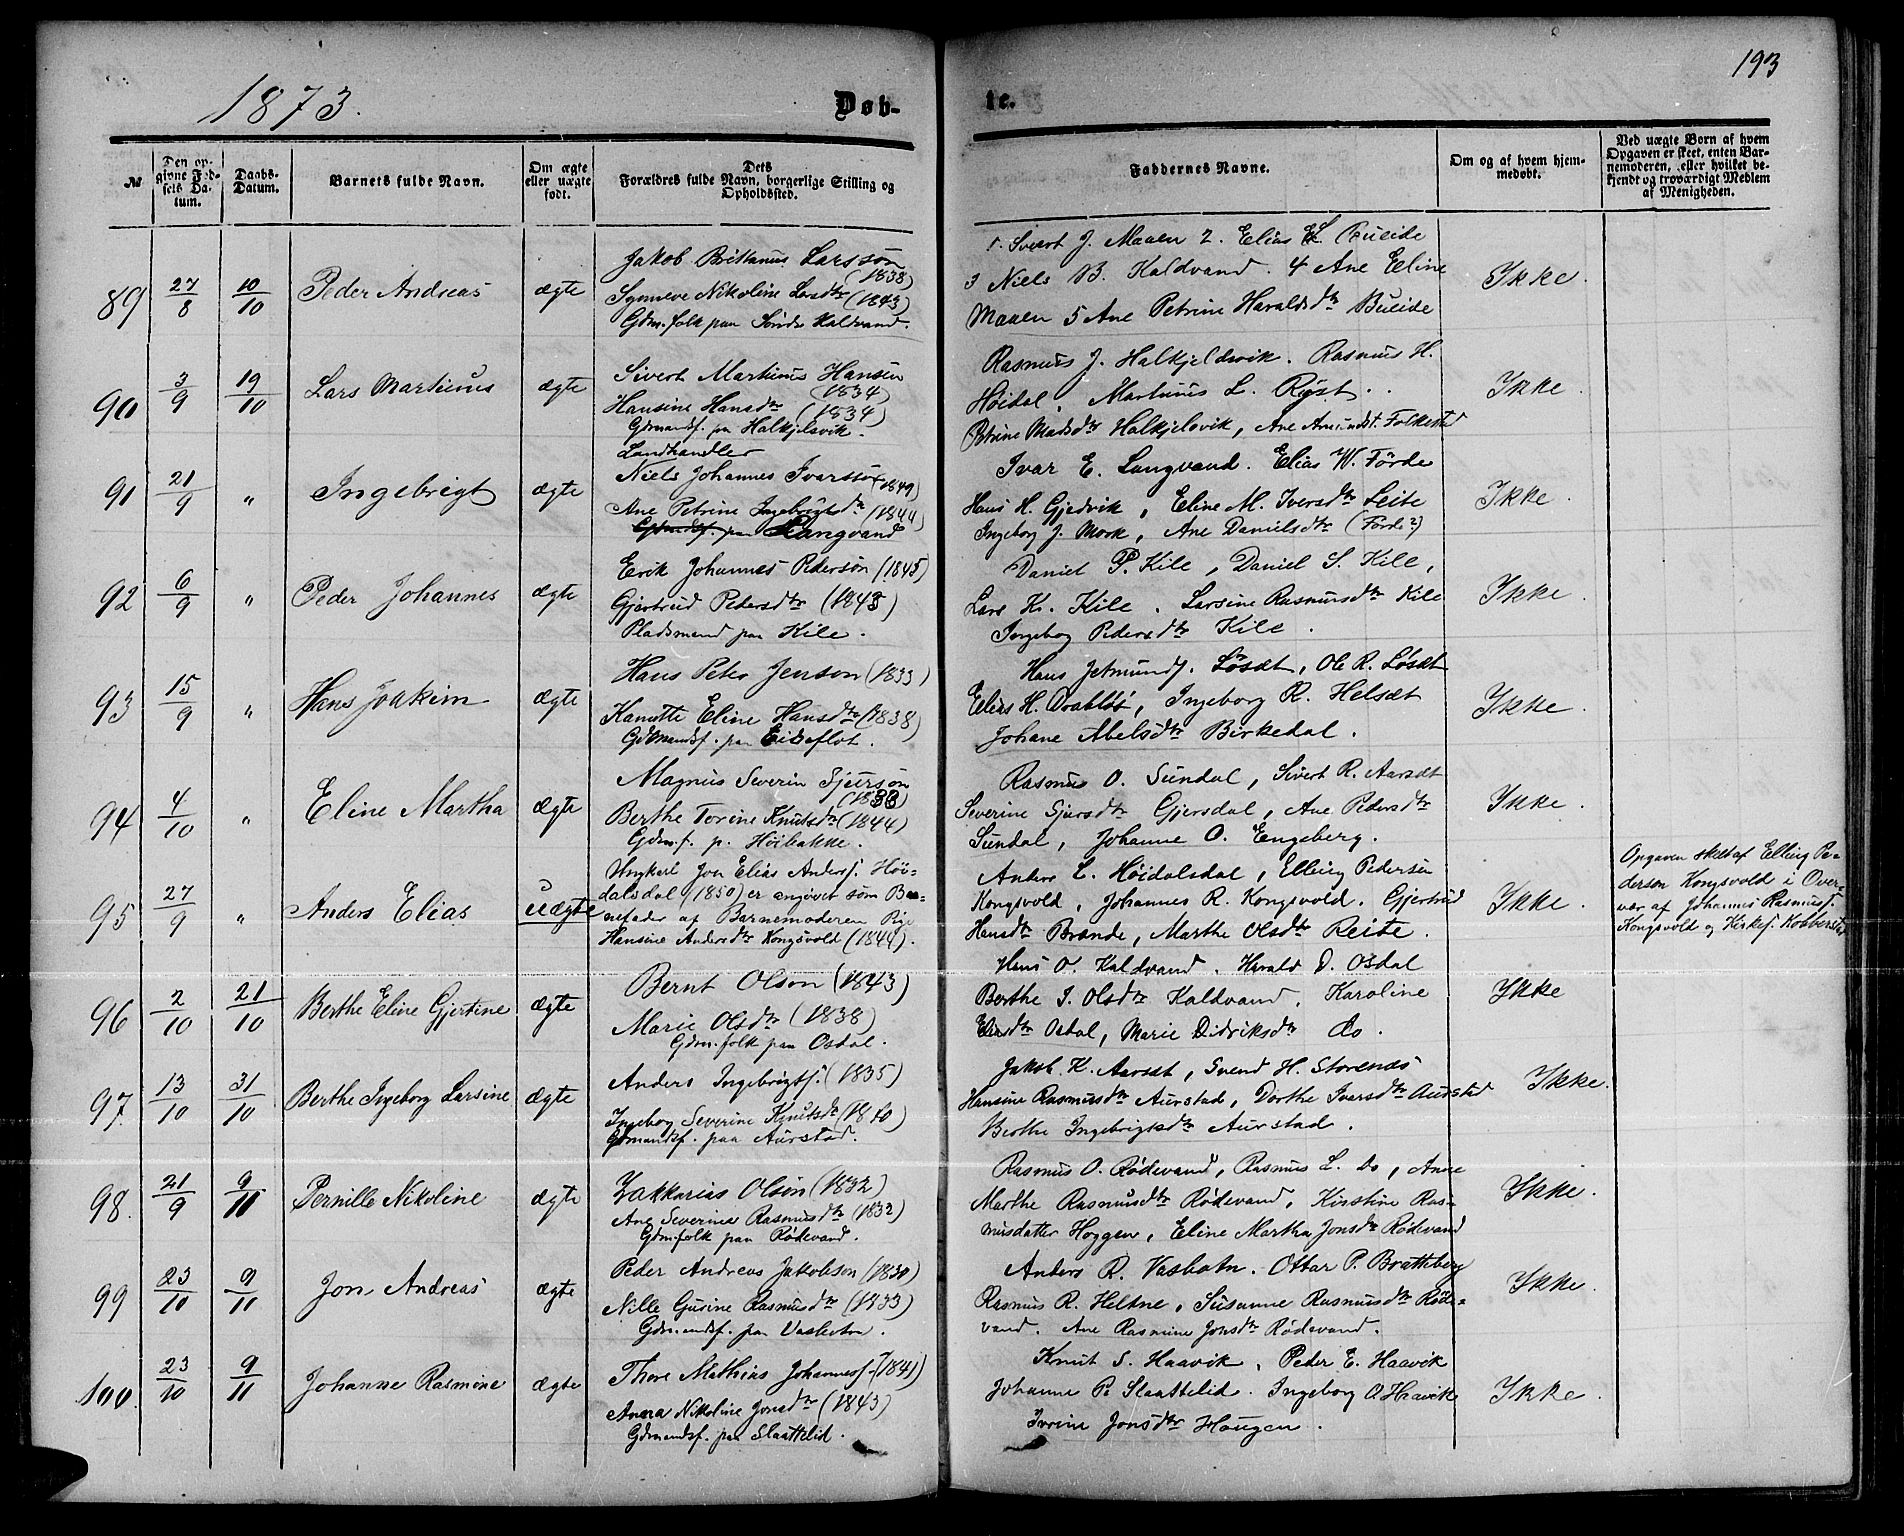 193
1873.
Døb-
te.
№
Den op-
givne Fød-
sels Da-
tum.
Daabs-
Datum.
Barnets fulde Navn.
Om ægte
eller uægte
født.
Dets
Forældres fulde Navn, borgerlige Stilling og
Opholdssted.
Faddernes Navne.
Om og af hvem hjem-
medøbt.
Ved uægte Børn af hvem
Opgaven er skeet, enten Bar-
nemoderen, eller hvilket be-
kjendt og troværdigt Medlem
af Menigheden.
89 27/8 10/10 Peder Andreas ægte
Jakob Brittanus Larsson
(1838)
Synneve Nikoline Larsdtr (1843)
Gdm.folk paa Søndre Kaldvand.
1. Sivert J. Maaen 2. Elias E. Bueide
3 Niels B. Kaldvand. 4 Ane Eline
Maaen 5 Ane Petrine Haraldsdtr Bueide
Ikke.
90 3/9 19/10 Lars Martinus ægte
Sivert Martinus Hansen
(1834)
Hansine Hansdtr (1834)
Gdmandsf. pa Halkjelsvik.
Rasmus J. Halkjeldsvik. Rasmus H.
Høidal, Martinus L. Ryst.
Petrine Madsdtr Halkjelsvik, Ane Amundsd. Folkestad
Ikke.
91 21/9 " Ingebrigt ægte
Landhandler
Niels Johannes Ivarsson (1849)
Ane Petrine Ingebrigtsdtr (1844)
Gdmandsf. paa Langvand
Ivar E. Langvand. Elias W. Förde
Hans H. Gjedvik, Eline M. Iversdtr Leite
Ingeborg J. Mork, Ane Danielsdtr (Förde?)
Ikke.
92 6/9 " Peder Johannes ægte
Erik Johannes Pedersøn (1845)
Gjertrud Pedersdtr (1843)
Pladsmand paa Kile.
Daniel P. Kile, Daniel S. Kile,
Lars K. Kile. Larsine Rasmusdtr Kile
Ingeborg Pedersdtr Kile.
Ikke.
93 15/9 " Hans Joakim ægte
Hans Peter Jenson (1833)
Kanutte Eline Hansdtr (1838)
Gdmandsf. paa Eidseflot.
Hans Jetmundf. Løsæt, Ole R. Løsæt
Elias H. Drabløs, Ingeborg R. Helsæt
Johane Abelsdtr Birkedal.
Ikke.
94 4/10 " Eline Martha ægte
Magnus Severin Sjursøn
(1838)
Berthe Torine Knutsdtr (1844)
Gdm.f. p. Høibakke.
Rasmus O. Sundal, Sivert R. Aarsæt
Severine Sjursdtr Gjersdal, Ane Pedersdtr
Sundal, Johanne O. Engeberg.
Ikke.
95 27/9 " Anders Elias uægte
Ungkarl Jon Elias Andersf. Høi-
dalsdal (1850) er angivet som Bar-
nefader af Barnemoderen Pige
Hansine Andersdtr Kongsvold (1844).
Anders L. Høidalsdal, Elling Pedersen
Kongsvold, Johannes R. Kongsvold. Gjertrud
Hansdtr Brande, Marthe Olsdtr Reite.
Ikke.
Opgaven skeet af Elling Pe-
dersen Kongsvold i Over-
vær af Johannes Rasmusf.
Kongsvold og Kirkes. Kobberstad
96 2/10 21/10 Berthe Eline Gjertine ægte
Bernt Olson (1843)
Marie Olsdtr (1838)
Gdm.folk paa Osdal.
Hans O. Kaldvand. Harald D. Osdal
Berthe I. Olsdtr Kaldvand. Karoline
Eliasdtr Osdal, Marie Didriksdtr do.
Ikke
97 13/10 31/10 Berthe Ingeborg Larsine ægte
Anders Ingebrigtsf. (1835)
Ingeborg Severine Knutsdtr (1840)
Gdmandsf. paa Aurstad.
Jakob K. Aarsæt, Svend H. Storenes
Hansine Rasmusdtr Aurstad, Dorthe Ivarsdtr Aurstad
Berthe Ingebrigtsdtr Aurstad.
Ikke.
98. 21/9 9/11 Pernille Nikoline ægte
Zakkarias Olsøn (1832)
Ane Severine Rasmusdtr (1832)
Gdm.folk paa Rødevand.
Rasmus O. Rødevand, Rasmus L. do, Anne
Marthe Rasmusdtr Rødevand, Kirstine Ras-
musdatter Hoggen, Eline Martha Jonsdtr Rødevand
Ikke.
99 23/10 9/11 Jon Andreas ægte
Peder Andreas Jakobson (1830)
Nille Gurine Rasmusdtr (1833)
Gdmandsf. paa Vasbotn.
Anders R. Vasbotn. Ottar P. Bratteberg
Rasmus R. Heltne, Susanne Rasmusdtr Røde-
vand. Ane Rasmine Jonsdtr Rødevand.
Ikke.
100. 23/10 9/11 Johanne Rasmine ægte
Thore Mathias Johannesf. (1841)
Anna Nikoline Jonsdtr (1843)
Gdmandsf. paa Slaattelid.
Knut S. Haavik, Peder E. Haavik
Johanne P. Slaattelid. Ingeborg O. Haavik
Ivrine Jonsdtr Haugen.
Ikke.